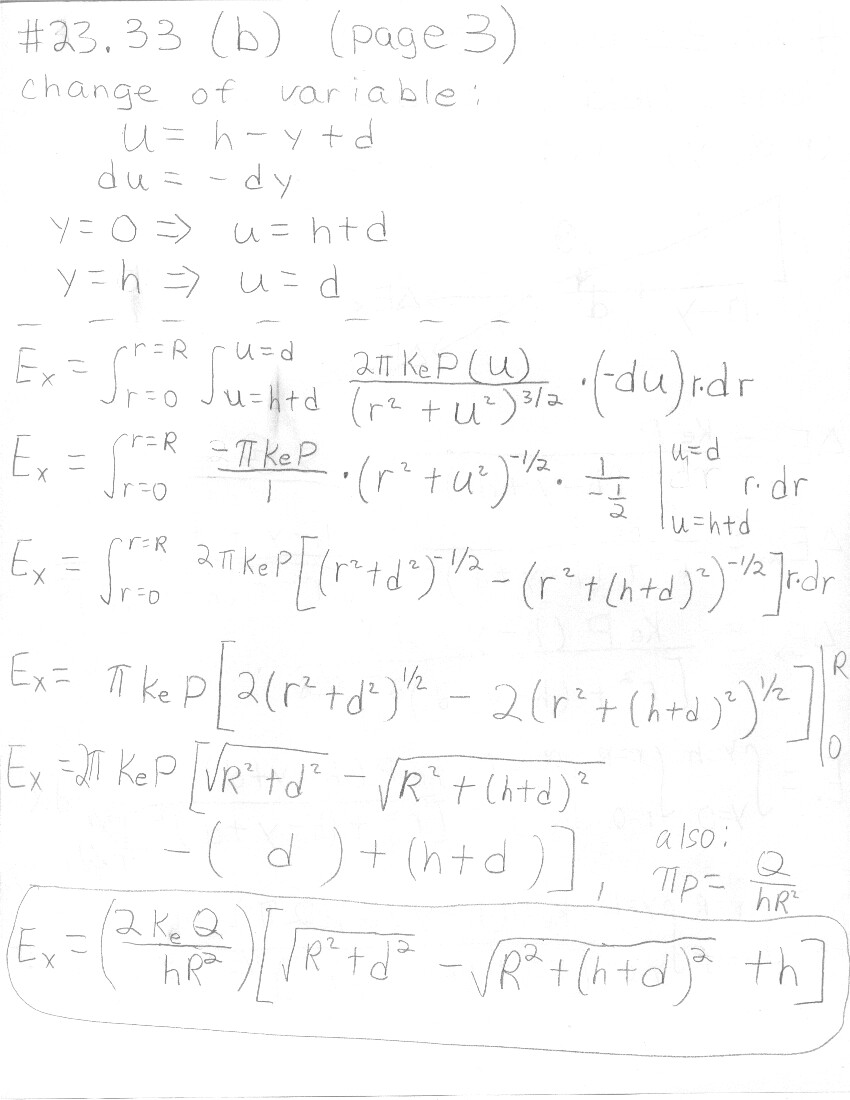 #23.33 (b) (page 3)
change of variable:
u = h - y + d
du = - dy
y = 0 ⇒ u = h+d
y = h ⇒ u = d
E_x = ∫_{r=0}^{r=R} ∫_{u=h+d}^{u=d} \frac{2π k_e ρ (u)}{(r² + u²)^{3/2}} · (-du) r·dr
E_x = ∫_{r=0}^{r=R} \frac{-π k_e ρ}{1} · (r² + u²)^{-1/2} · \frac{1}{-\frac{1}{2}} |_{u=h+d}^{u=d} r·dr
E_x = ∫_{r=0}^{r=R} 2π k_e ρ [(r²+d²)^{-1/2} - (r² + (h+d)²)^{-1/2}] r·dr
E_x = π k_e ρ [2(r²+d²)^{1/2} - 2(r² + (h+d)²)^{1/2}] |_0^R
E_x = 2π k_e ρ [√(R²+d²) - √(R² + (h+d)²)
- ( d ) + (h+d)], also: πρ = \frac{Q}{hR²}
E_x = (\frac{2 k_e Q}{hR²}) [√(R²+d²) - √(R²+(h+d)²) + h]